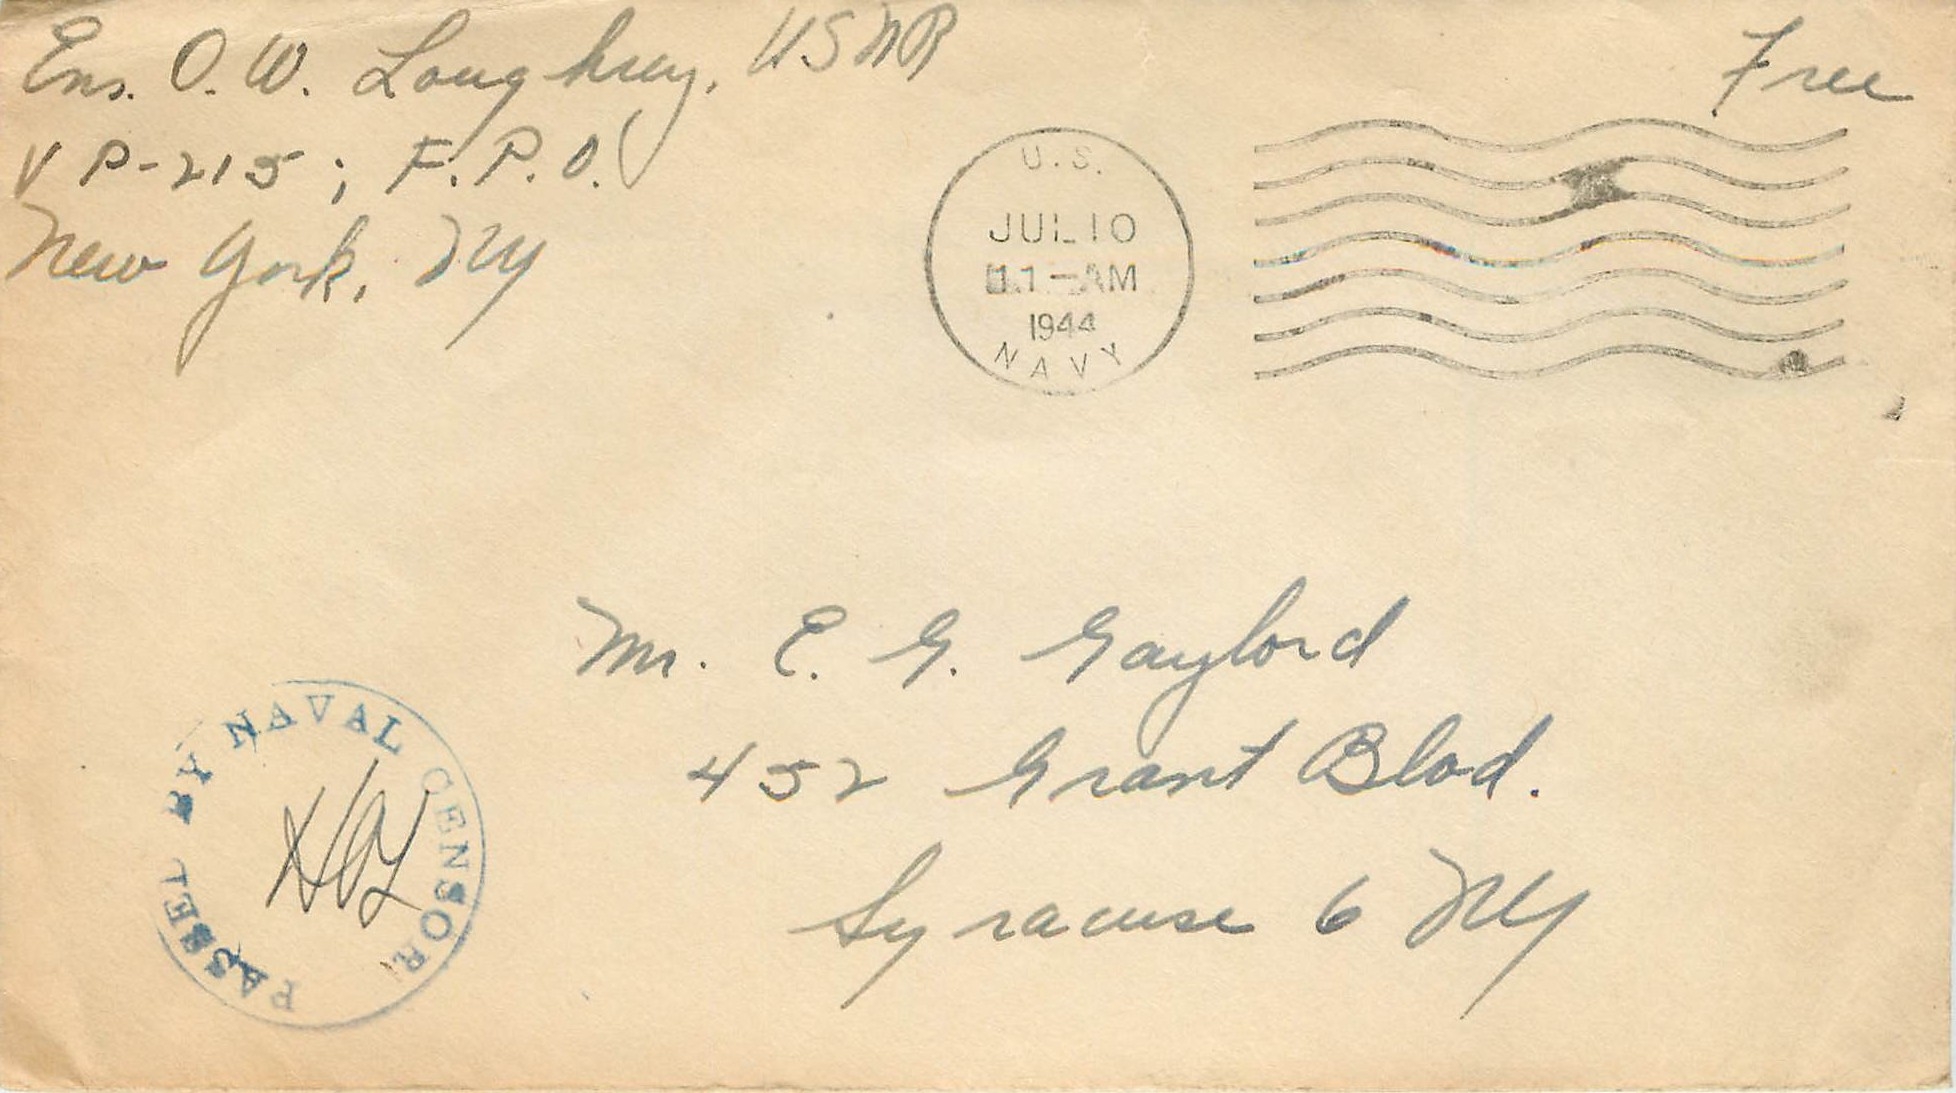 Ens. O. W. Loughrey, USNR
VP-215; F.P.O.
New York, NY
Free
U.S.
JUL 10
11-AM
1944
NAVY
Mr. E. G. Gaylord
452 Grant Blvd.
Syracuse 6 NY
PASSED BY NAVAL CENSOR